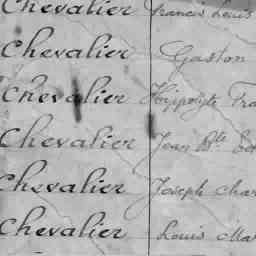 Chevalier Francis Louis
Chevalier Gaston
Chevalier Hippolyte Fra
Chevalier Jean Bte
Chevalier Joseph Char
Chevalier Louis Mar